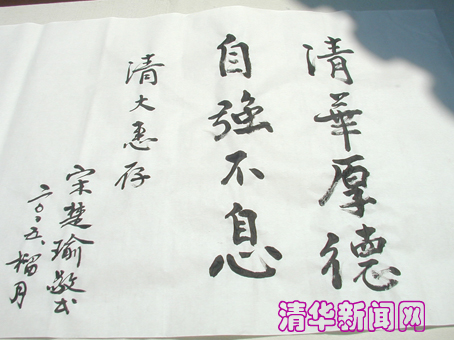 清華厚德
自強不息
清大惠存
宋楚瑜敬书
二〇〇五.榴月
清华新闻网